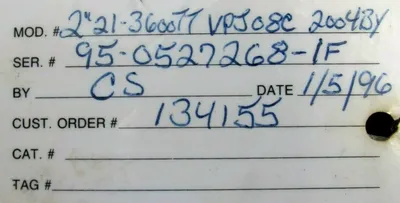 MOD. # 2" 21-3600TT VPJ08C 2004BY
SER. # 95-0527268-1F
BY CS DATE 1/5/96
CUST. ORDER # 134155
CAT. #
TAG #